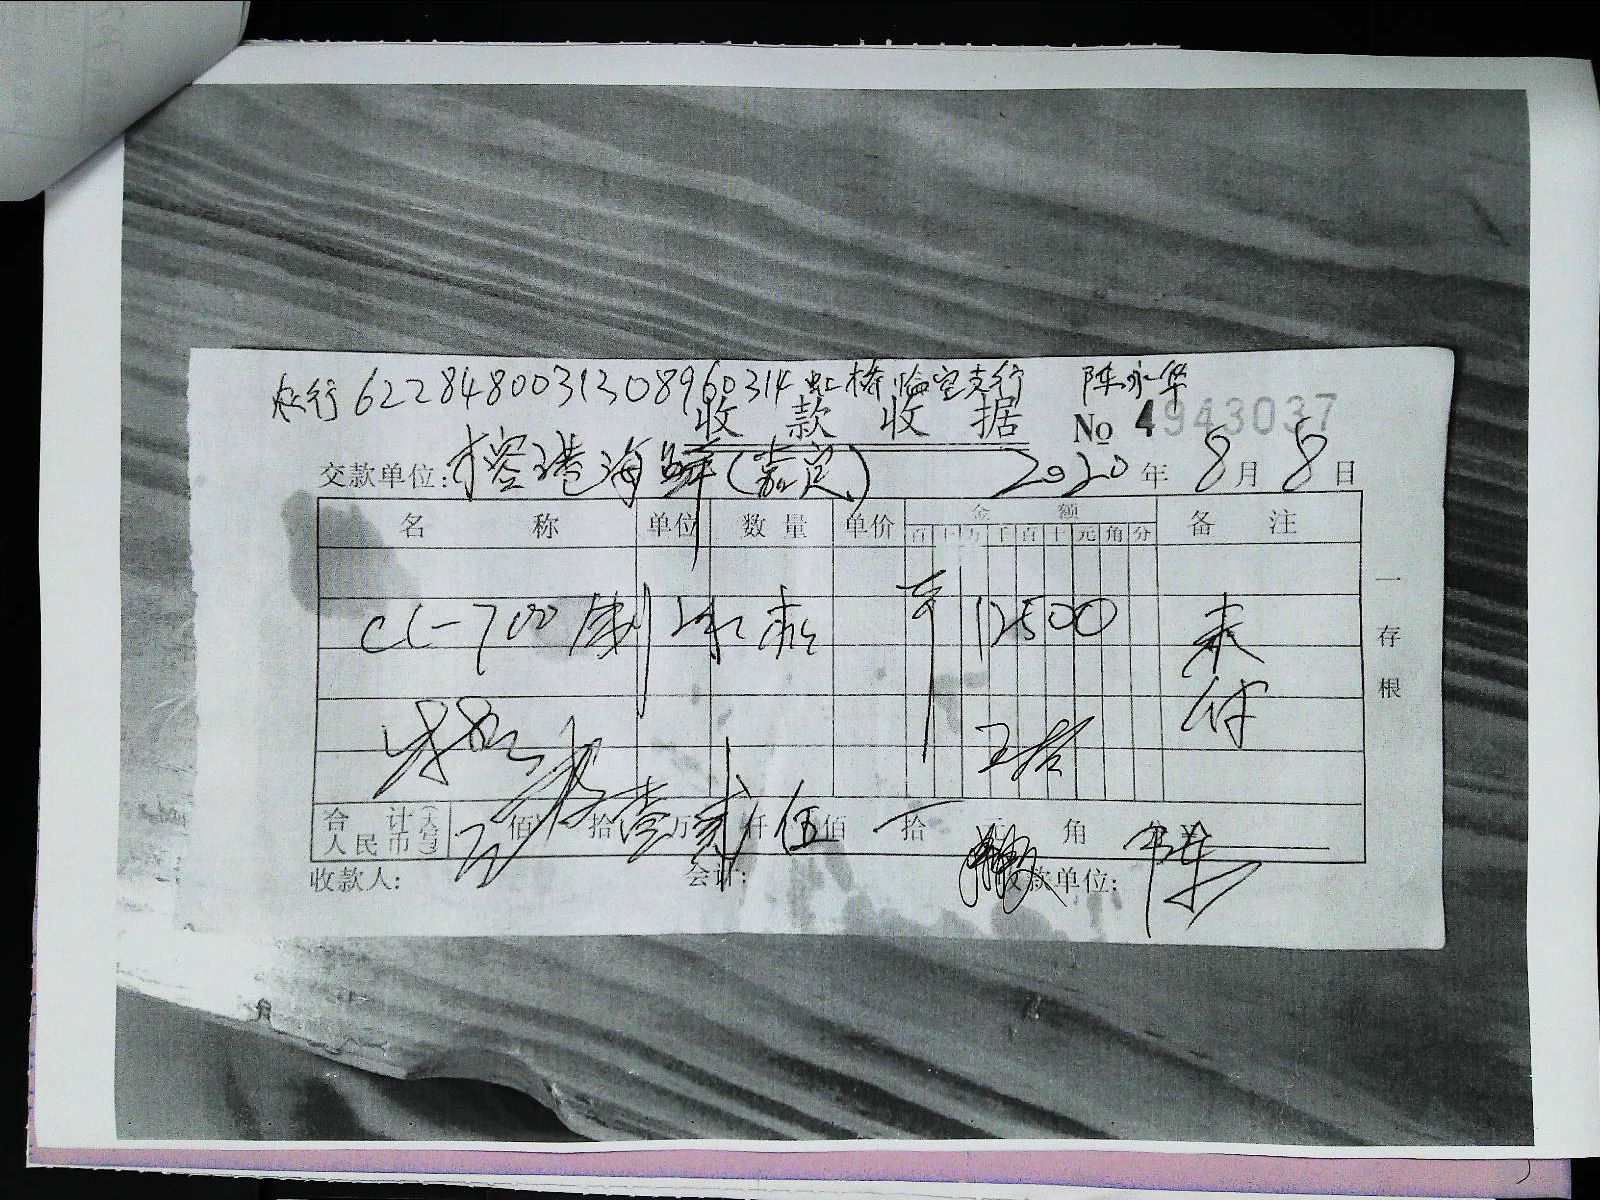 农行 6228480031308960314 虹桥临空支行 陈永华
收款收据 No 4943037
交款单位: 榕港海鲜(嘉定) 2020年8月8日
名称 单位 数量 单价 金额 备注
百十万千百十元角分
CL-700 制冰 12500 未付
合计人民币(大写) 佰 拾壹万贰仟伍佰 拾 元 角 分¥
收款人: 会计: 收款单位: 陈
一存根